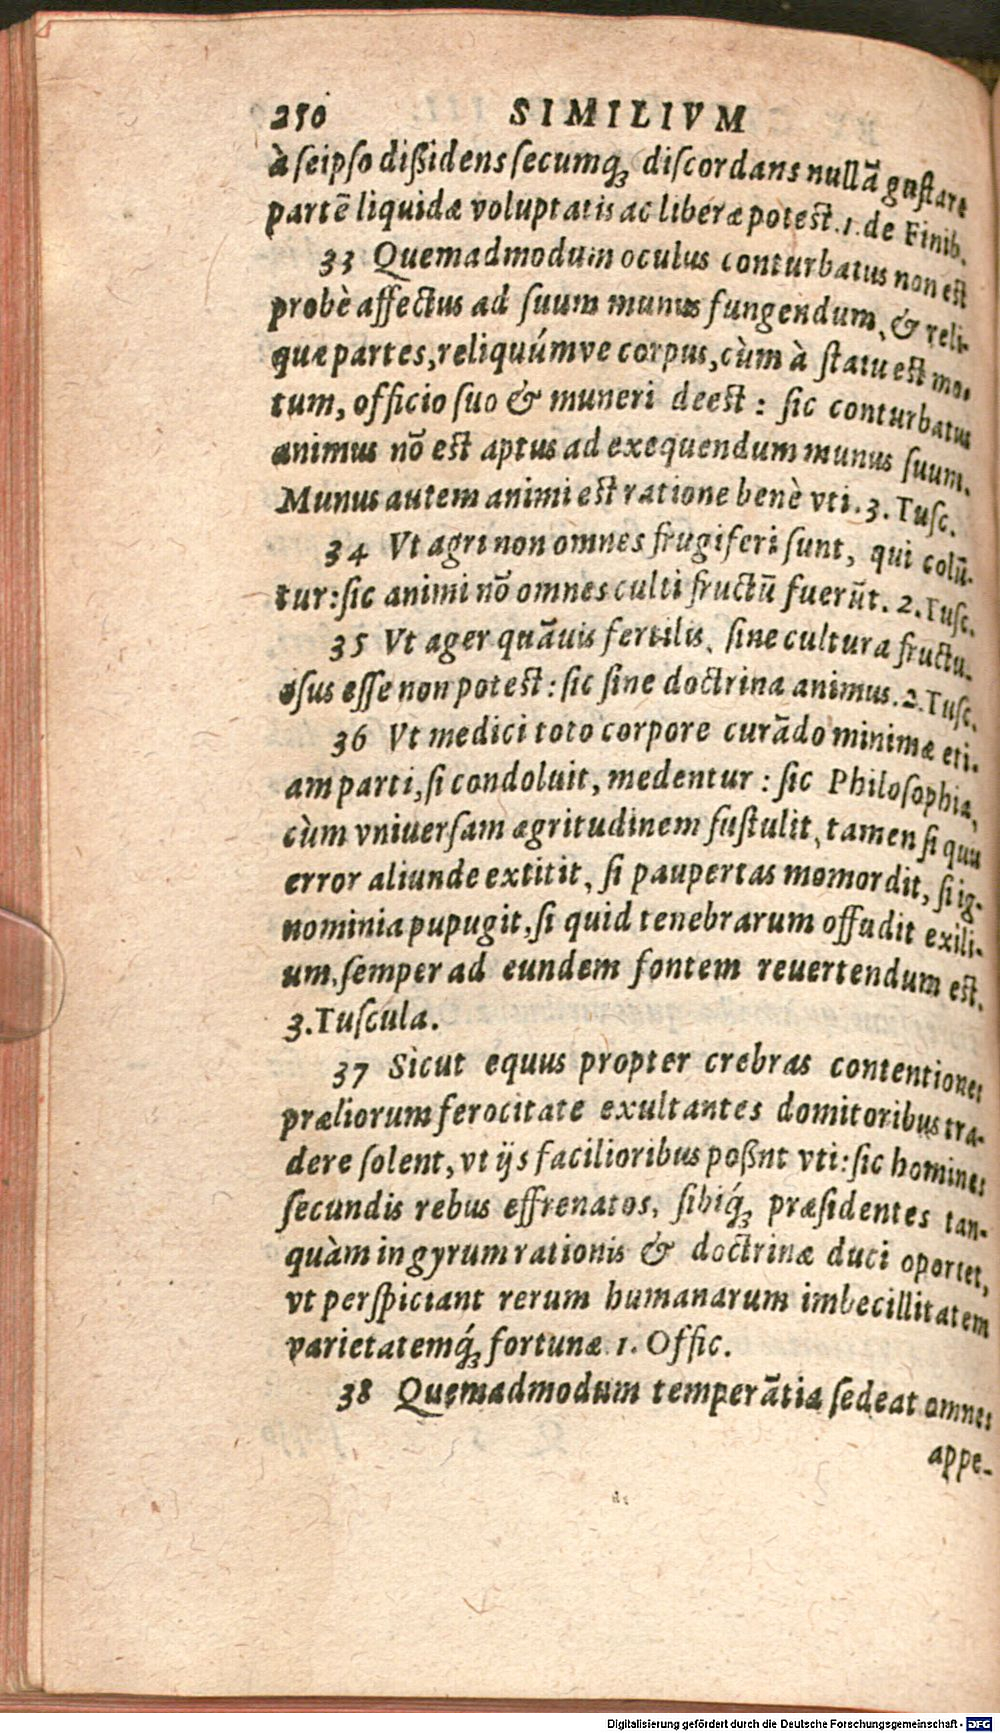 250 SIMILIVM
à ſeipſo dißidens ſecumq́ꝫ diſcordans nullā guſtare
partē liquidæ voluptatis ac liberæ poteſt. 1. de Finib.
33 Quemadmodum oculus conturbatus non eſt
probè affectus ad ſuum munus fungendum, & reli-
quæ partes, reliquúmve corpus, cùm à ſtatu eſt mo-
tum, officio ſuo & muneri deeſt: ſic conturbatus
animus nō eſt aptus ad exequendum munus ſuum.
Munus autem animi eſt ratione benè vti. 3. Tuſc.
34 Vt agri non omnes frugiferi ſunt, qui colū-
tur: ſic animi nō omnes culti fructū fuerūt. 2. Tuſc.
35 Vt ager quāuis fertilis, ſine cultura fructu-
oſus eſſe non poteſt: ſic ſine doctrina animus. 2. Tuſc.
36 Vt medici toto corpore curādo minimæ eti-
am parti, ſi condoluit, medentur: ſic Philoſophia,
cùm vniuerſam ægritudinem ſuſtulit, tamen ſi quu
error aliunde extitit, ſi paupertas momordit, ſi ig-
nominia pupugit, ſi quid tenebrarum offudit exili-
um, ſemper ad eundem fontem reuertendum eſt.
3. Tuſcula.
37 Sicut equus propter crebras contentiones
præliorum ferocitate exultantes domitoribus tra-
dere ſolent, vt ijs facilioribus poßnt vti: ſic homines
ſecundis rebus effrenatos, ſibiq́ꝫ præſidentes tan-
quàm in gyrum rationis & doctrinæ duci oportet,
vt perſpiciant rerum humanarum imbecillitatem
varietatemq́ꝫ fortunæ 1. Offic.
38 Quemadmodum temperātia ſedeat omnes
appe-
Digitalisierung gefördert durch die Deutsche Forschungsgemeinschaft - DFG